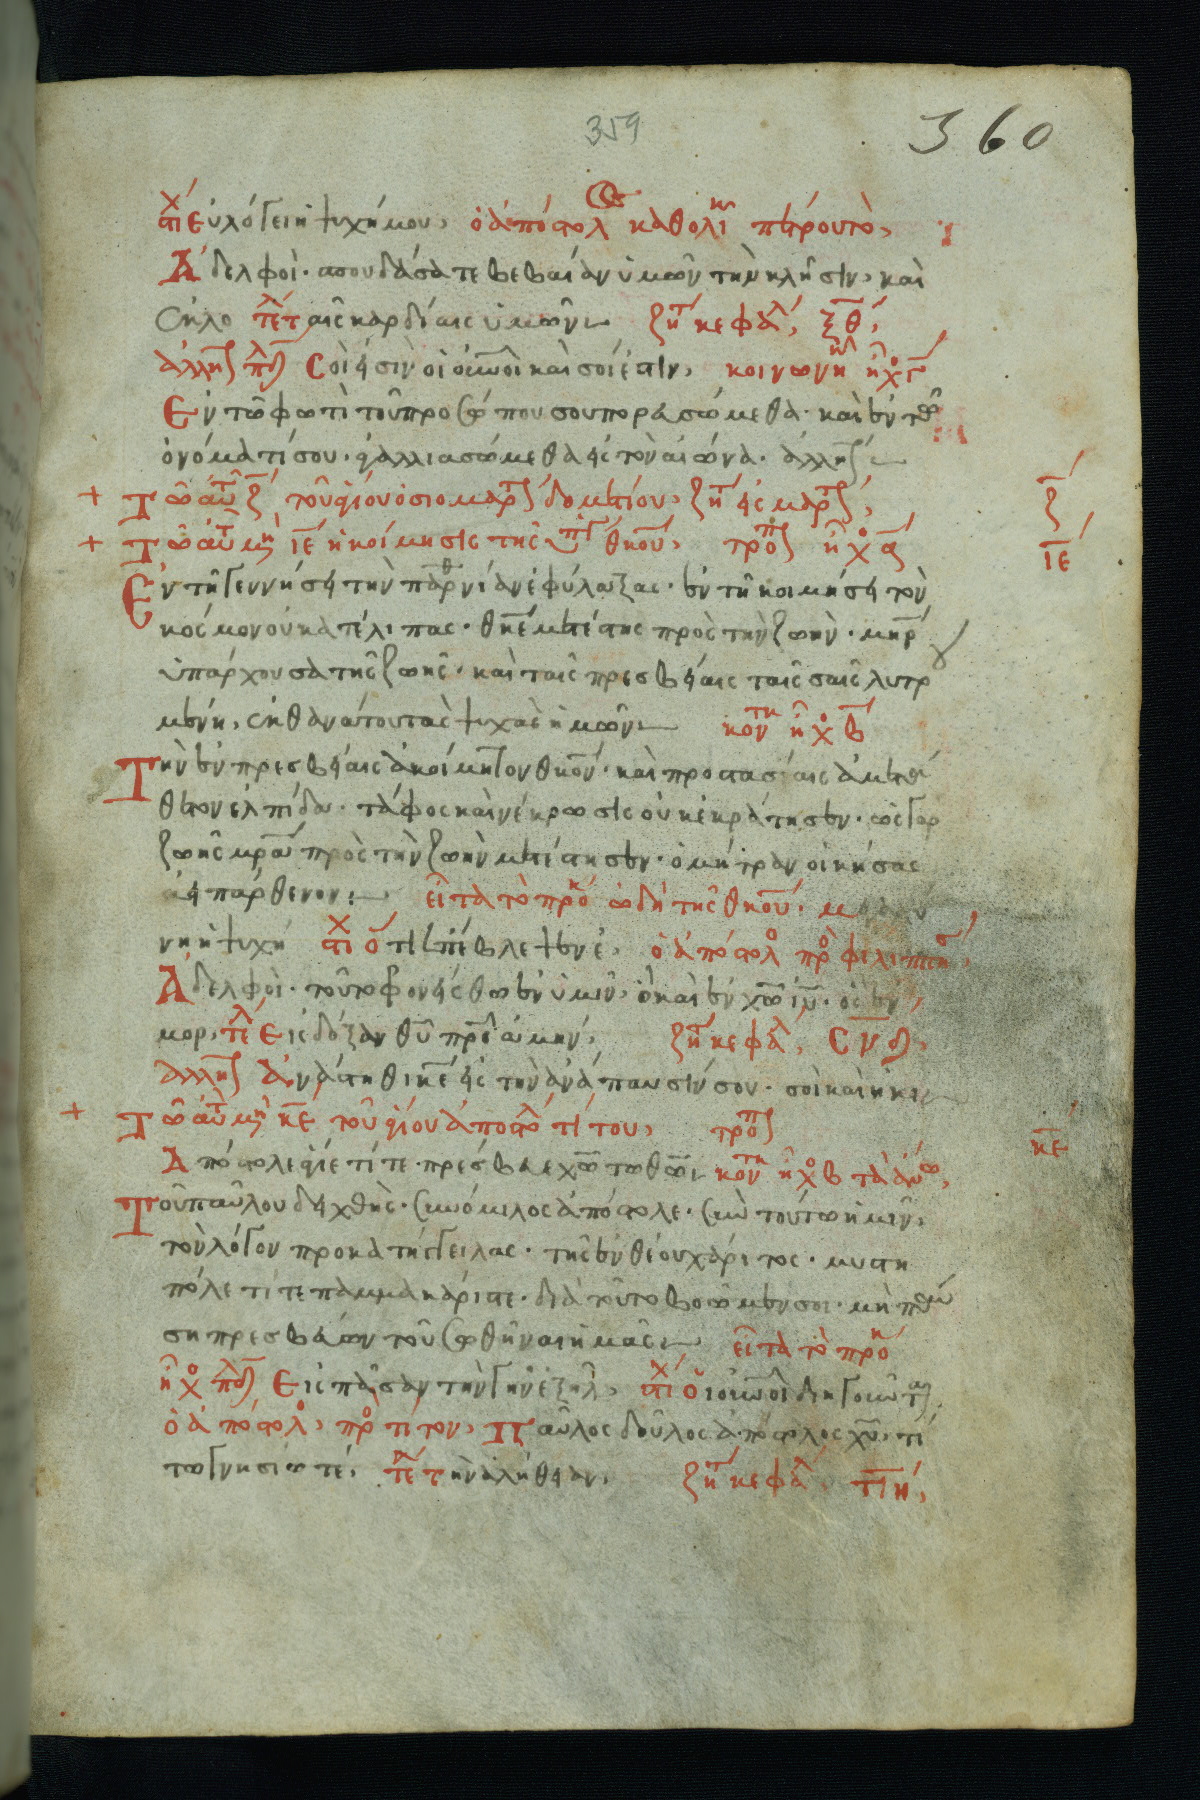 359
360
στί Εὐλόγει ἡ ψυχή μου, ὁ ἀπόστολ καθολικῆ πέτρου τὸ,
Ἀδελφοὶ· σπουδάσατε βεβαίαν ὑμῶν τὴν κλῆσιν, καὶ
ταῖς καρδίαις ὑμῶν ζητ κεφάλ, ξθ,
ἀλλης Σοὶ εἰσὶν οἱ οὐνοὶ καὶ σοί ἐστιν, κοινωνικ ἦχος
Ἐν τῶ φωτὶ τοῦ προσώπου σου πορευσώμεθα· καὶ ἐν τῶ
ὀνόματί σου· ἀγαλλιασώμεθα εἰς τὸν αἰῶνα· ἀλλης
+ Τῶ αὐτ ζ τοῦ ἁγίου ὁσιομαρτ δομετίου, ζητ εἰς μαρτ, ζ
+ Τῶ αὐτ μηνὶ ιε ἡ κοίμησις τῆς θκου, τροπ ἦχ α ιε
Ἐν τῆ γεννήσει τὴν παρθενίαν ἐφύλαξας· ἐν τῆ κοιμήσει τὸν
κόσμον οὐ κατέλιπας· θκε μετέστης πρὸς τὴν ζωὴν· μηρ
ὑπάρχουσα τῆς ζωῆς· καὶ ταῖς πρεσβείαις ταῖς σαῖς λυτρ
μένη, ἐκ θανάτου τας ψυχας ἡμῶν κον ἦχ β
Τὴν ἐν πρεσβείαις ἀκοίμητον θκον· καὶ προστασίαις ἀμετά
θετον ἐλπίδα· τάφος καὶ νέκρωσις οὐκ ἐκράτησεν· ὡς γὰρ
ζωῆς μρα πρὸς τὴν ζωὴν μετέστησεν· ὁ μήτραν οἰκήσας
ἀειπάρθενον: εἶτα τὸ προκ ὠδὴ τῆς θκου·
νει ἡ ψυχή στί Ὅτι ἐπέβλεψεν ἐ, ὁ ἀπόστολ πρ φιλιππη,
Ἀδελφοὶ· τοῦτο φρονείσθω ἐν ὑμῖν· ὃ καὶ ἐν χω ιυ· ὃς ἐν
μορ, τέλ Εἰς δόξαν θυ πρς ἀμήν, ζητ κεφάλ, σμ,
ἀλλης Ἀνάστηθι κε εἰς τὴν ἀνάπαυσίν σου· σοὶ καὶ ἡ κι
+ Τῶ αὐτ μηνὶ κε τοῦ ἁγίου ἀποστόλ τίτου, τροπ κε
Ἀπόστολε ἅγιε τίτε· πρέσβευε χω τω θω κον ἦχ β τὰ ἄνω,
Τοῦ παύλου δειχθεὶς· συνόμιλος ἀπόστολε· σὺν τούτω ἡμῖν,
τὸν λόγον προκατήγγειλας· τῆς ἐνθέου χάριτος· μυστη
πόλε τίτε παμμακάριστε· διὰ τοῦτο βοῶμεν σοι· μὴ παύ
ση πρεσβεύων τοῦ σωθῆναι ἡμᾶς εἶτα τὸ προκ
ἦχ Εἰς πᾶσαν τὴν γῆν ἐξηλ, στί Οἱ οὐνοὶ διηγοῦντ
ὁ ἀπόστολ, πρ τίτον, Παῦλος δοῦλος ἀπόστολος χυ, τί
τω γνησίω τέ, τέλ τὴν ἀλήθειαν, ζητ κεφάλ, τιη,